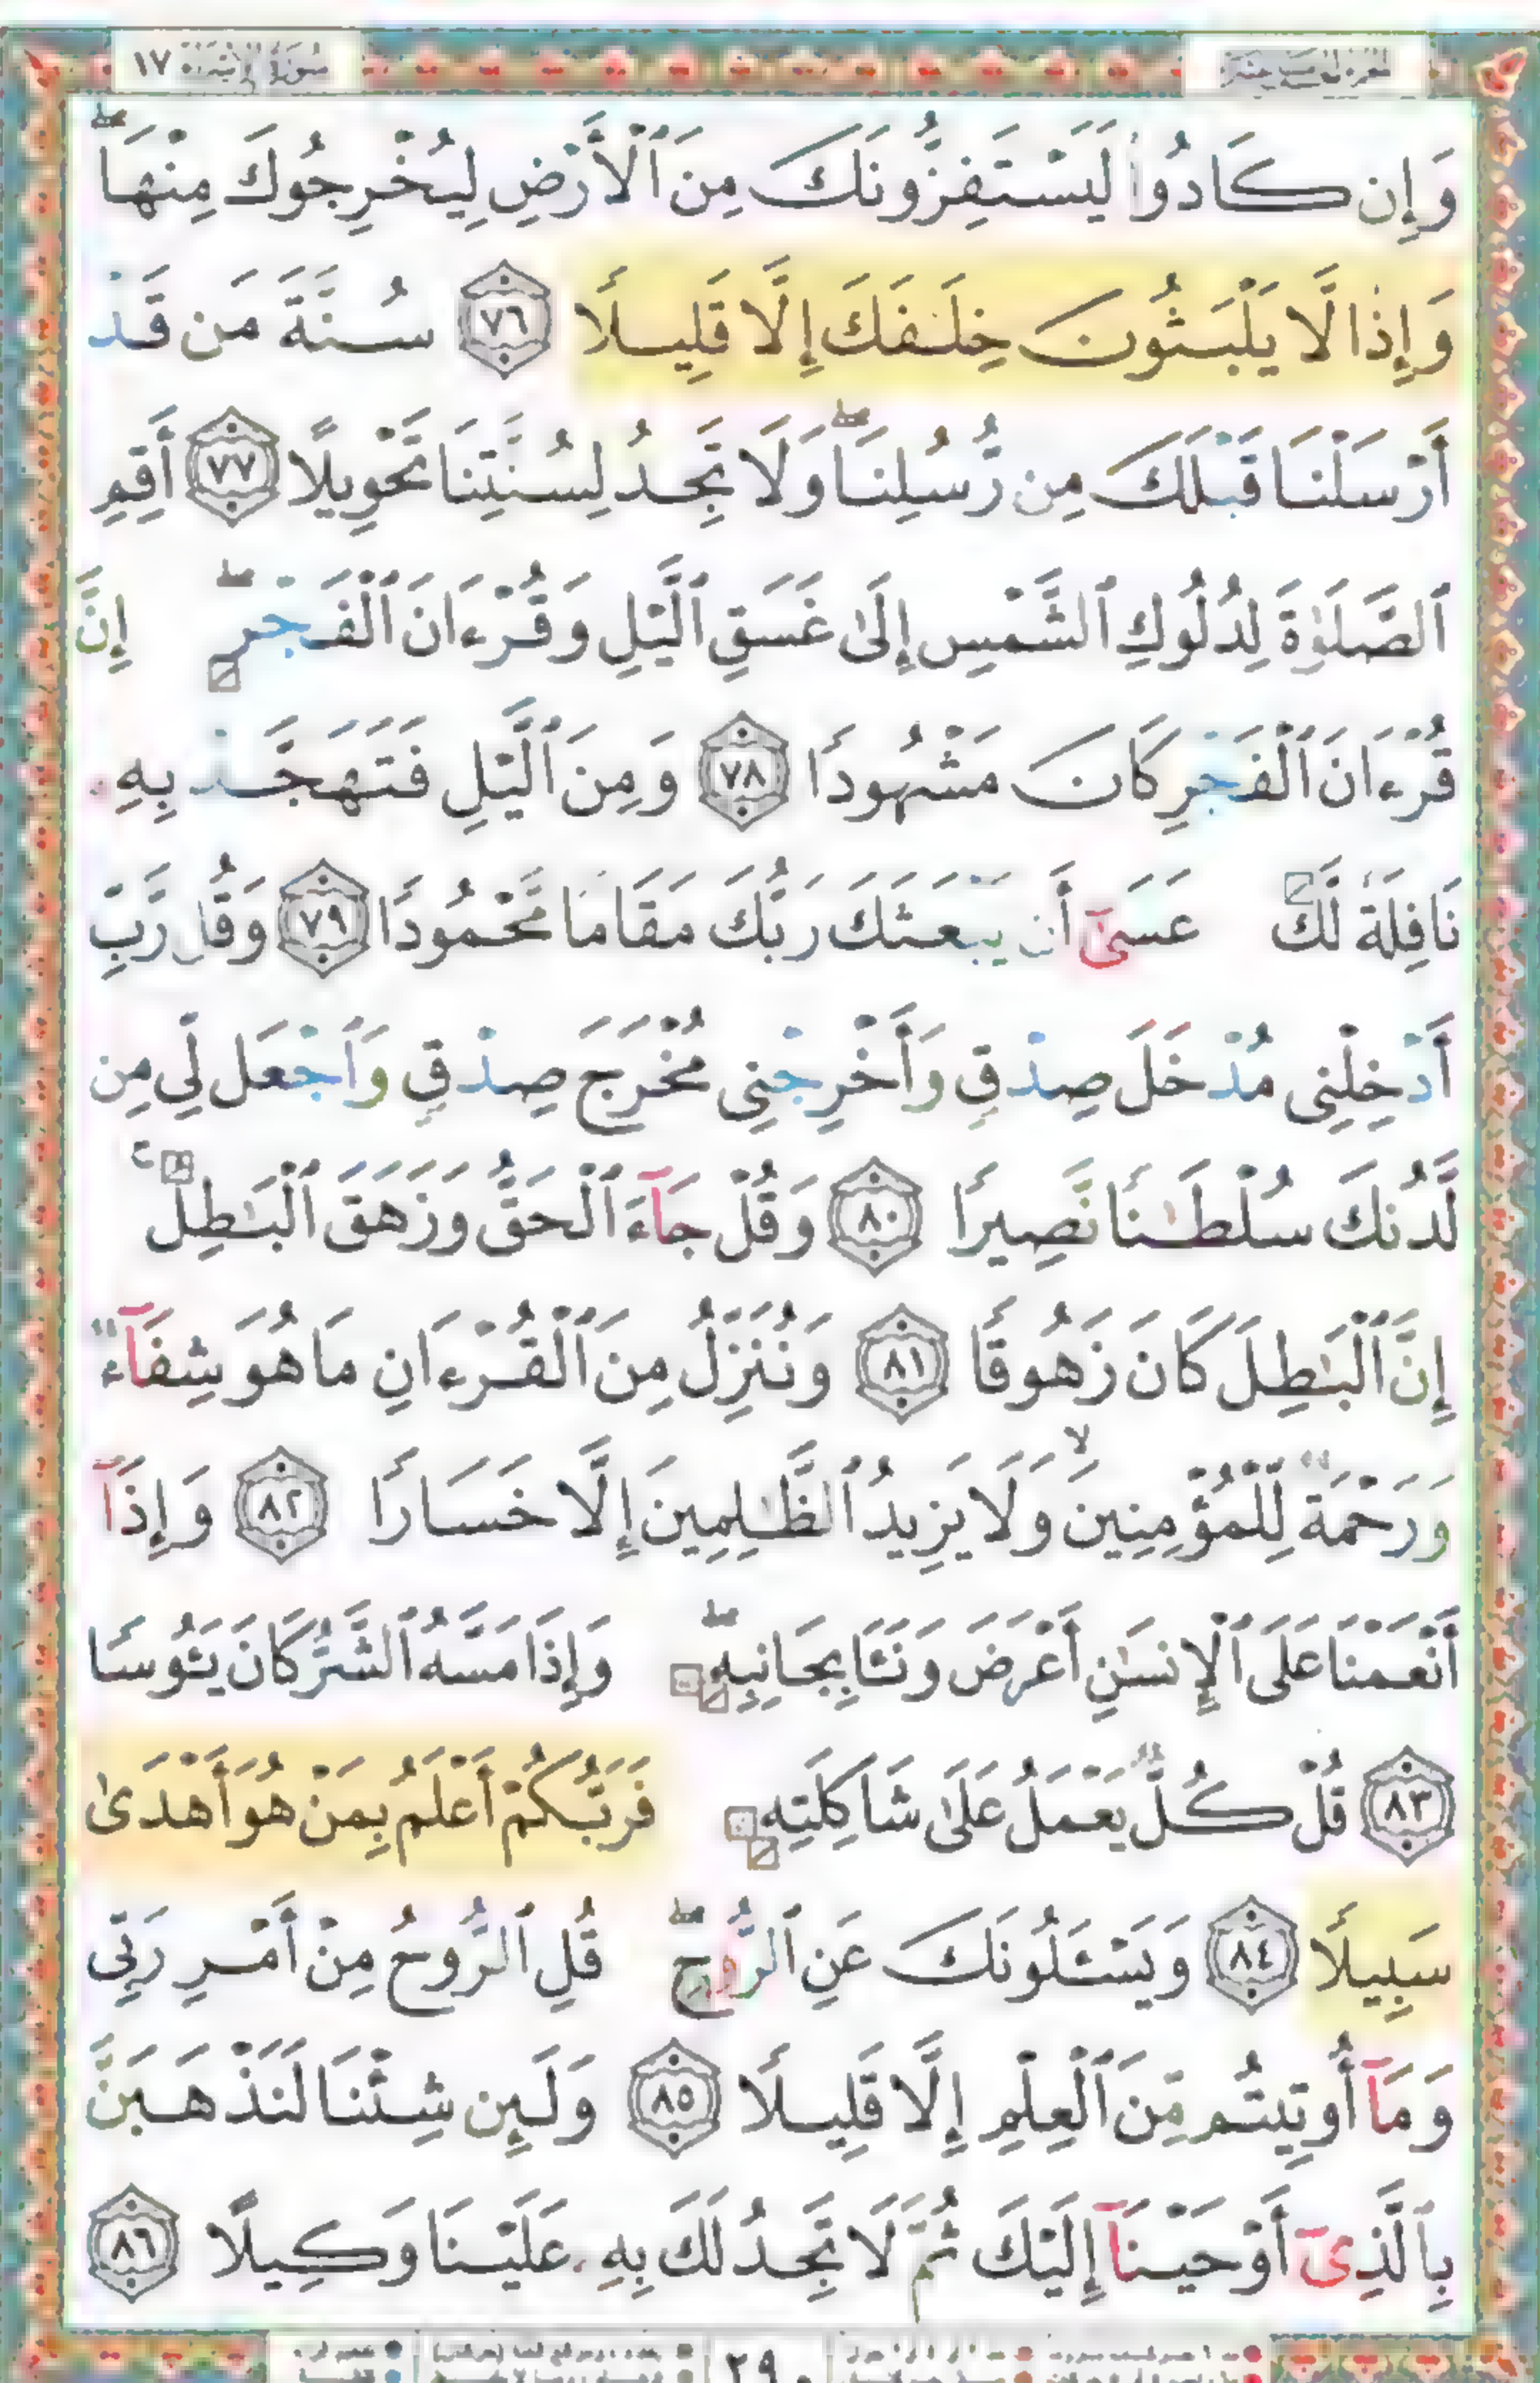 سُورَةُ الإِسْرَاءِ ١٧
وَإِن كَادُوا۟ لَيَسْتَفِزُّونَكَ مِنَ ٱلْأَرْضِ لِيُخْرِجُوكَ مِنْهَا ۖ
وَإِذًا لَّا يَلْبَثُونَ خِلَـٰفَكَ إِلَّا قَلِيلًا ٧٦ سُنَّةَ مَن قَدْ
أَرْسَلْنَا قَبْلَكَ مِن رُّسُلِنَا ۖ وَلَا تَجِدُ لِسُنَّتِنَا تَحْوِيلًا ٧٧ أَقِمِ
ٱلصَّلَوٰةَ لِدُلُوكِ ٱلشَّمْسِ إِلَىٰ غَسَقِ ٱلَّيْلِ وَقُرْءَانَ ٱلْفَجْرِ ۖ إِنَّ
قُرْءَانَ ٱلْفَجْرِ كَانَ مَشْهُودًا ٧٨ وَمِنَ ٱلَّيْلِ فَتَهَجَّدْ بِهِۦ
نَافِلَةً لَّكَ عَسَىٰٓ أَن يَبْعَثَكَ رَبُّكَ مَقَامًا مَّحْمُودًا ٧٩ وَقُل رَّبِّ
أَدْخِلْنِى مُدْخَلَ صِدْقٍ وَأَخْرِجْنِى مُخْرَجَ صِدْقٍ وَٱجْعَل لِّى مِن
لَّدُنكَ سُلْطَـٰنًا نَّصِيرًا ٨٠ وَقُلْ جَآءَ ٱلْحَقُّ وَزَهَقَ ٱلْبَـٰطِلُ ۚ
إِنَّ ٱلْبَـٰطِلَ كَانَ زَهُوقًا ٨١ وَنُنَزِّلُ مِنَ ٱلْقُرْءَانِ مَا هُوَ شِفَآءٌ
وَرَحْمَةٌ لِّلْمُؤْمِنِينَ ۙ وَلَا يَزِيدُ ٱلظَّـٰلِمِينَ إِلَّا خَسَارًا ٨٢ وَإِذَآ
أَنْعَمْنَا عَلَى ٱلْإِنسَـٰنِ أَعْرَضَ وَنَـَٔا بِجَانِبِهِۦ ۖ وَإِذَا مَسَّهُ ٱلشَّرُّ كَانَ يَـُٔوسًا
٨٣ قُلْ كُلٌّ يَعْمَلُ عَلَىٰ شَاكِلَتِهِۦ فَرَبُّكُمْ أَعْلَمُ بِمَنْ هُوَ أَهْدَىٰ
سَبِيلًا ٨٤ وَيَسْـَٔلُونَكَ عَنِ ٱلرُّوحِ ۖ قُلِ ٱلرُّوحُ مِنْ أَمْرِ رَبِّى
وَمَآ أُوتِيتُم مِّنَ ٱلْعِلْمِ إِلَّا قَلِيلًا ٨٥ وَلَئِن شِئْنَا لَنَذْهَبَنَّ
بِٱلَّذِىٓ أَوْحَيْنَآ إِلَيْكَ ثُمَّ لَا تَجِدُ لَكَ بِهِۦ عَلَيْنَا وَكِيلًا ٨٦
٢٩٠